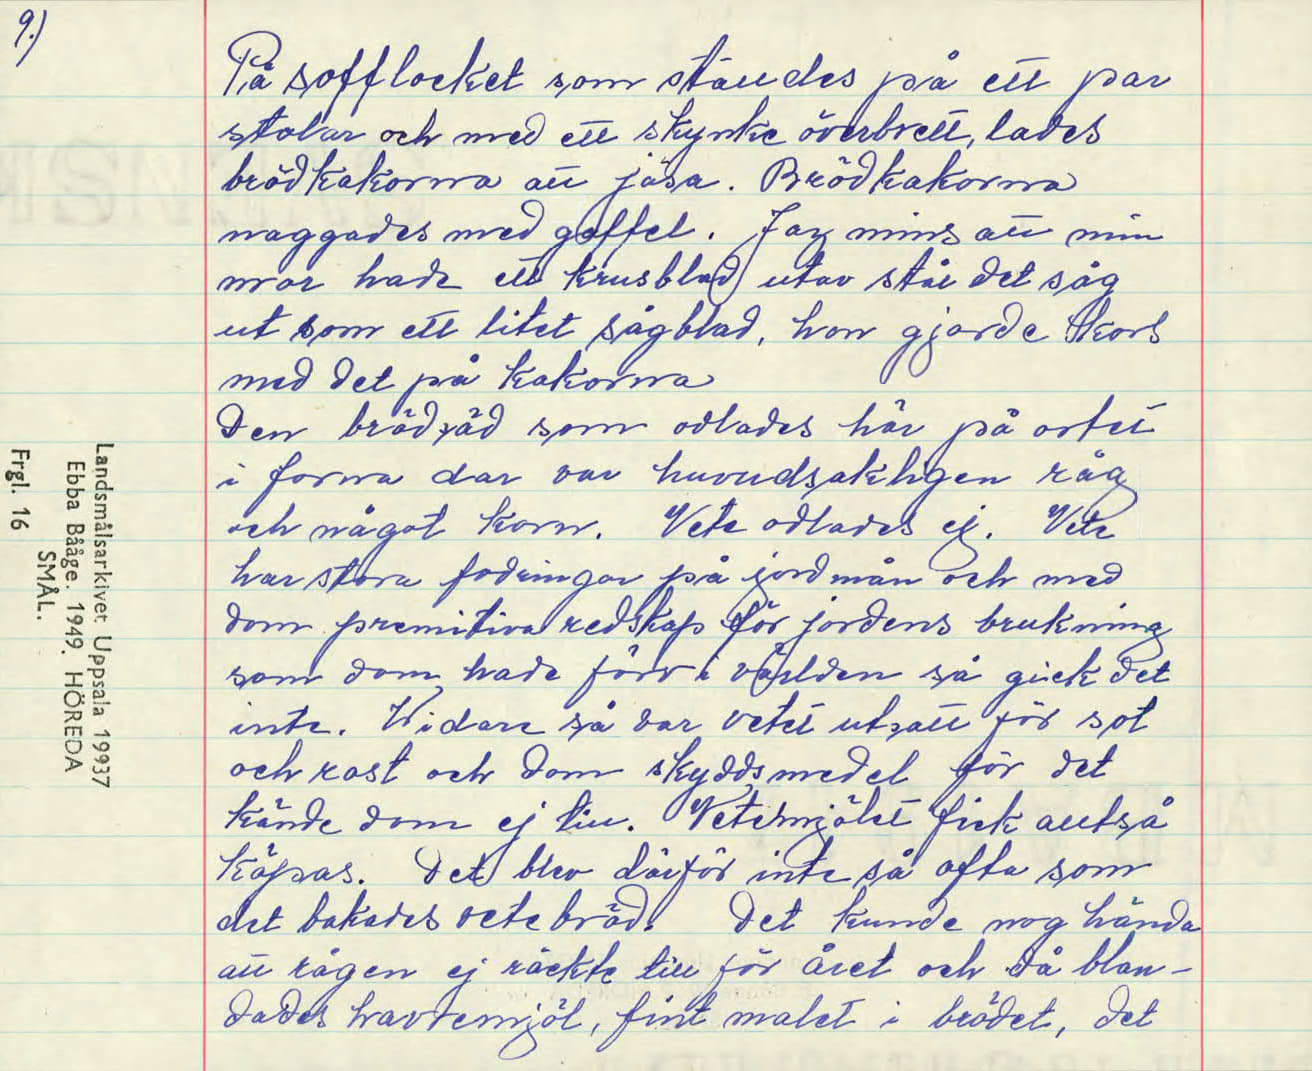 9.)
På sofflocket som ställdes på ett par
stolar och med ett skynke överbrett, lades
brödkakorna att jäsa. Brödkakorna
naggades med gaffel. Jag mins att min
mor hade ett krusblad utav stål det såg
ut som ett litet sågblad, hon gjorde kors
med det på kakorna
Den brödsäd som odlades här på orten
i forna dar var huvudsakligen råg
och något korn. Vete odlades ej. Vete
har stora fodringar på jordmån och med
dom premitiva redskap för jordens brukning
som dom hade förr i världen så gick det
inte. Vidare så var vetet utsatt för sot
och rost och dom skyddsmedel för det
kände dom ej till. Vetemjölet fick alltså
köpas. Det blev därför inte så ofta som
det bakades vetebröd. Det kunde nog hända
att rågen ej räckte till för året och då blan-
dades havremjöl, fint malet i brödet, det
Landsmålsarkivet Uppsala 19937
Ebba Bååge. 1949. HÖREDA
SMÅL.
Frgl. 16